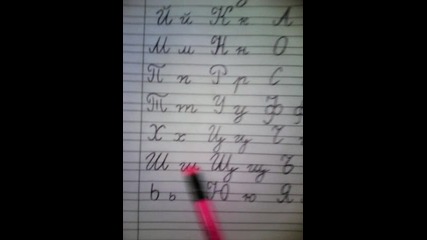 Й й К н Л
М м Н н О
П п Р р С
Т т У у Ф ф
Х х Ц ц Ч
Ш ш Щ щ Ъ
Ь ь Ю ю Я